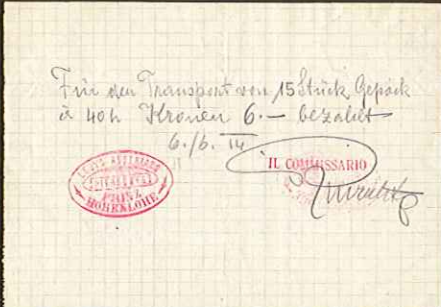 Für den Transport von 15 Stück Gepäck
à 40 h Kronen 6.— bezahlt
6./6. 14
PRINZ
HOHENLOHE
IL COMMISSARIO